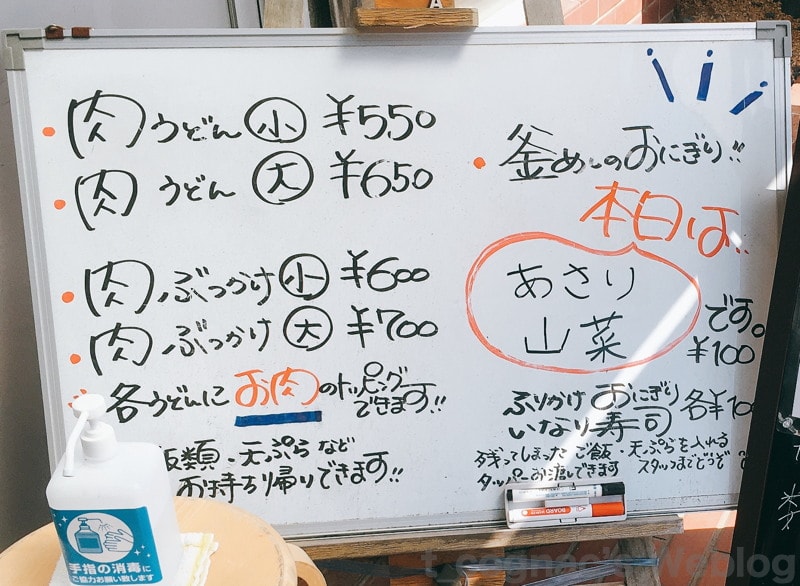 肉うどん 小 ¥550
肉うどん 大 ¥650
肉ぶっかけ 小 ¥600
肉ぶっかけ 大 ¥700
各うどんにお肉のトッピング
できます!!
飯類・天ぷらなど
お持ち帰りできます!!
釜めしのおにぎり!!
本日は..
あさり
山菜
です。
¥100
ふりかけおにぎり
いなり寿司 各¥10
残ってしまったご飯・天ぷらを入れる
タッパーお渡しできます スタッフまでどうぞ
BOARD MARKER
手指の消毒に
ご協力お願い致します
t_cognac's Weblog